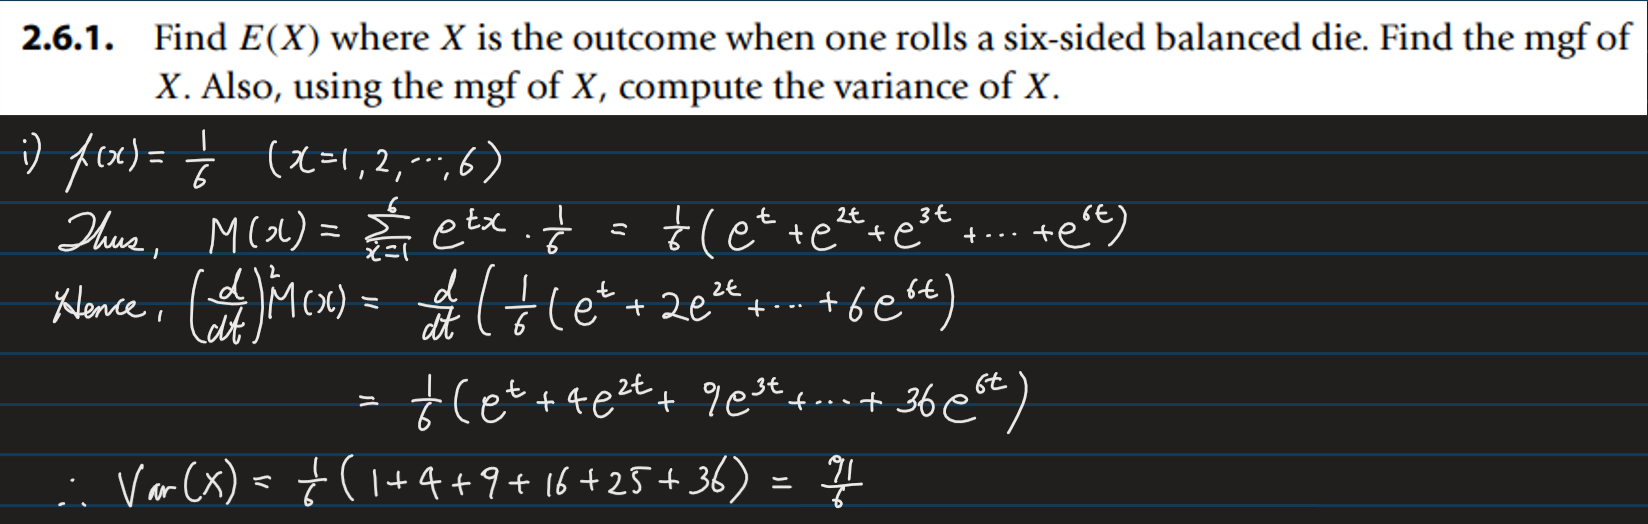 2.6.1. Find E(X) where X is the outcome when one rolls a six-sided balanced die. Find the mgf of
X. Also, using the mgf of X, compute the variance of X.
i) f(x) = 1/6 (x=1, 2, ..., 6)
Thus, M(x) = Σ_{x=1}^{6} e^{tx} · 1/6 = 1/6 (e^t + e^{2t} + e^{3t} + ... + e^{6t})
Hence, (d/dt)^2 M(x) = d/dt (1/6 (e^t + 2e^{2t} + ... + 6e^{6t})
= 1/6 (e^t + 4e^{2t} + 9e^{3t} + ... + 36e^{6t})
∴ Var(X) = 1/6 (1+4+9+16+25+36) = 91/6